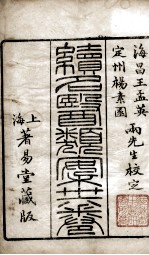 海昌王孟英
定州楊素園
兩先生校定
續名醫類案卅六卷
上海著易堂藏版